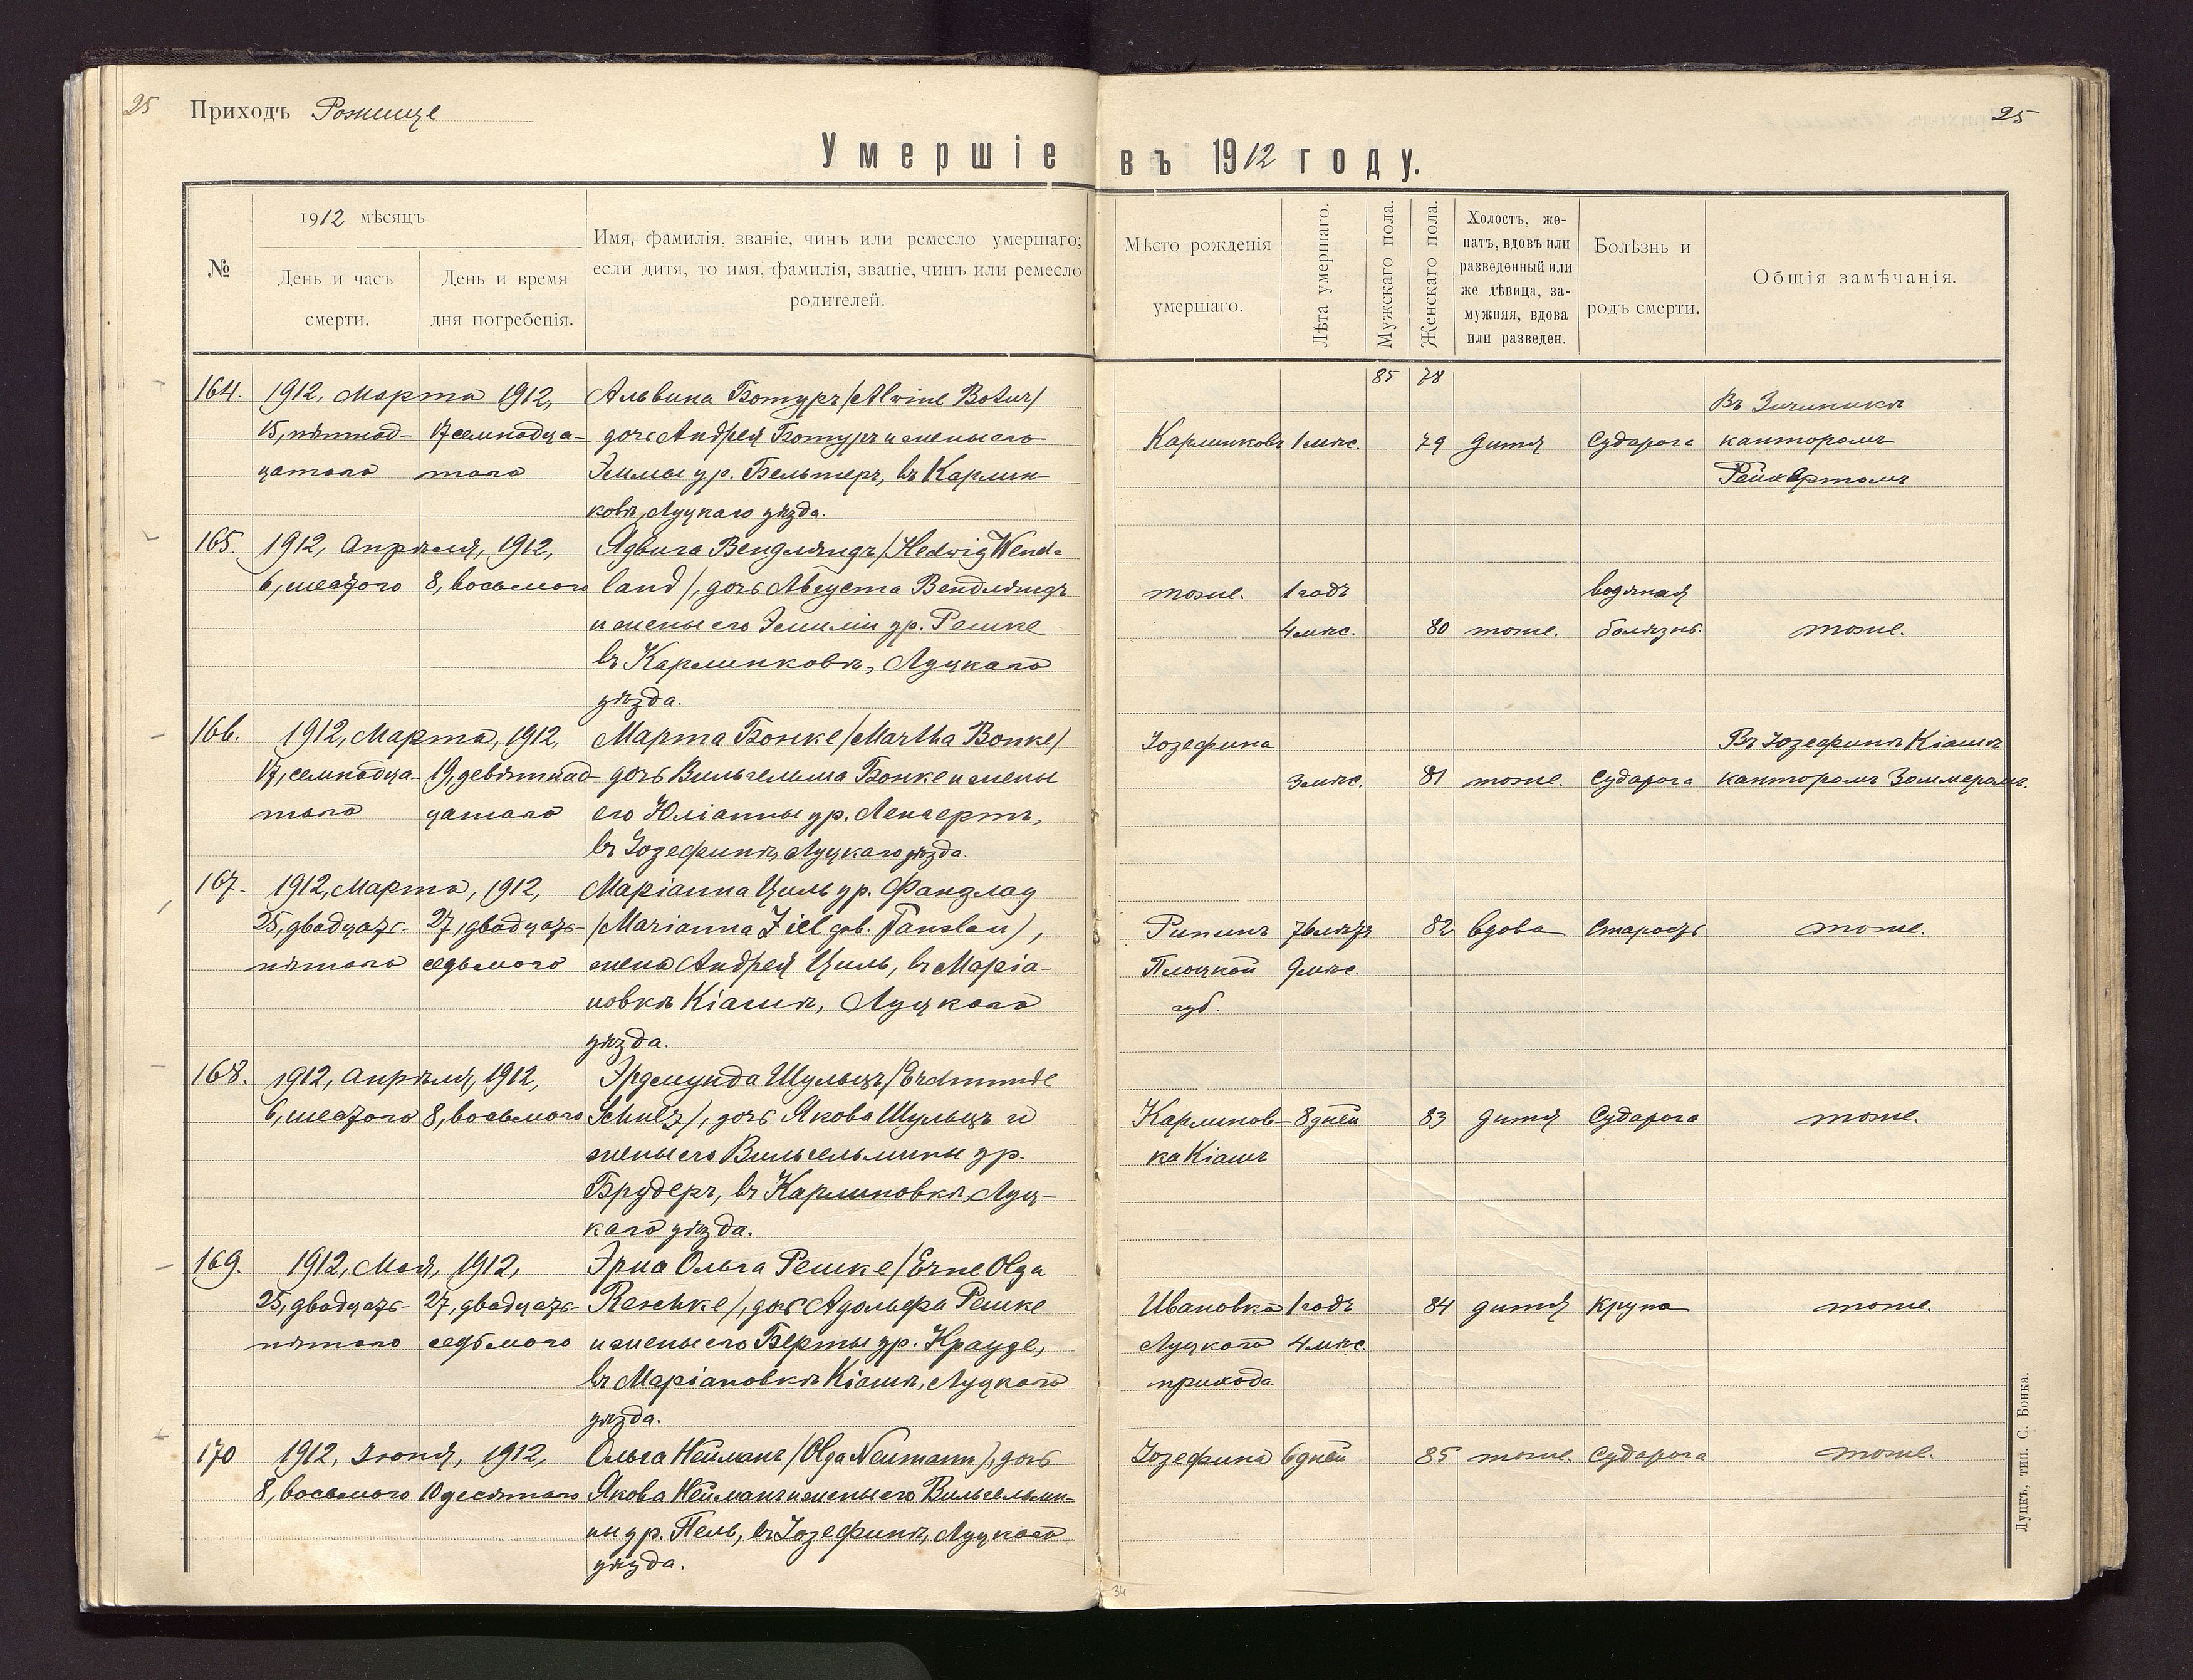 25 Приходъ Рожище
25
Умершіе въ 1912 году.
№
1912 мѣсяцъ
День и часъ смерти.
День и время дня погребенія.
Имя, фамилія, званіе, чинъ или ремесло умершаго;
если дитя, то имя, фамилія, званіе, чинъ или ремесло
родителей.
Мѣсто рожденія
умершаго.
Лѣта умершаго.
Мужскаго пола.
Женскаго пола.
Холостъ, же-
натъ, вдовъ или
разведенный или
же дѣвица, за-
мужняя, вдова
или разведен.
Болѣзнь и
родъ смерти.
Общія замѣчанія.
85 78
164. 1912, Марта 1912, Альвина Ботуръ /Alwine Botur/
15, пятнад- 17 семнадца- дочь Андрея Ботуръ и жены его
цатаго таго Эммы ур. Бельтеръ, въ Карлин-
ковѣ, Луцкаго уѣзда.
Карлинковъ 1 мѣс. 79 дитя Судорога
Въ
канторомъ
165. 1912, Апрѣля, 1912, Ядвига Вендляндъ /Hedwig Wend-
6, шестого 8, восьмого land/, дочь Августа Вендляндъ
и жены его Эмиліи ур. Решке
въ Карлинковѣ, Луцкаго
уѣзда.
тоже. 1 годъ водяная
4 мѣс. 80 тоже. болѣзнь. тоже.
166. 1912, Марта, 1912, Марта Бонке /Martha Bonke/
17, семнадца- 19, девятнад- дочь Вильгельма Бонке и жены
таго цатаго его Юліанны ур. Ленгертъ,
въ Іозефинѣ, Луцкаго уѣзда.
Іозефина Въ Іозефинѣ Кіашъ
3 мѣс. 81 тоже. Судорога канторомъ Зоммеромъ.
167. 1912, Марта, 1912, Маріанна Циль ур. Фанзлау
25, двадцать- 27, двадцать- (Marianna Ziel geb. Fanslau),
пятаго седьмого жена Андрея Циль, въ Марія-
новкѣ Кіашѣ, Луцкаго
уѣзда.
Рипинъ 76 лѣтъ 82 вдова Старость тоже.
Плоцкой 9 мѣс.
губ.
168. 1912, Апрѣля, 1912, Эрдмунда Шульцъ /Erdmunde
6, шестого 8, восьмого Schulz/, дочь Якова Шульцъ и
жены его Вильгельмины ур.
Брудеръ, въ Карлиновкѣ, Луц-
каго уѣзда.
Карлинов- 8 дней 83 дитя Судорога тоже.
ка Кіашъ
169. 1912, Мая, 1912, Эрна Ольга Решке /Erne Olga
25, двадцать- 27, двадцать- Reschke/, дочь Адольфа Решке
пятаго седьмого и жены его Берты ур. Краузе,
въ Маріановкѣ Кіашѣ, Луцкаго
уѣзда.
Ивановка 1 годъ 84 дитя крупа тоже.
Луцкаго 4 мѣс.
прихода
170 1912, Іюня, 1912, Ольга Нейманъ /Olga Neumann/, дочь
8, восьмого 10 десятаго Якова Нейманъ и жены его Вильгельми-
ны ур. Пель, въ Іозефинѣ, Луцкаго
уѣзда.
Іозефина 6 дней 85 тоже. Судорога тоже.
Луцкъ, тип. С. Бонка.
34